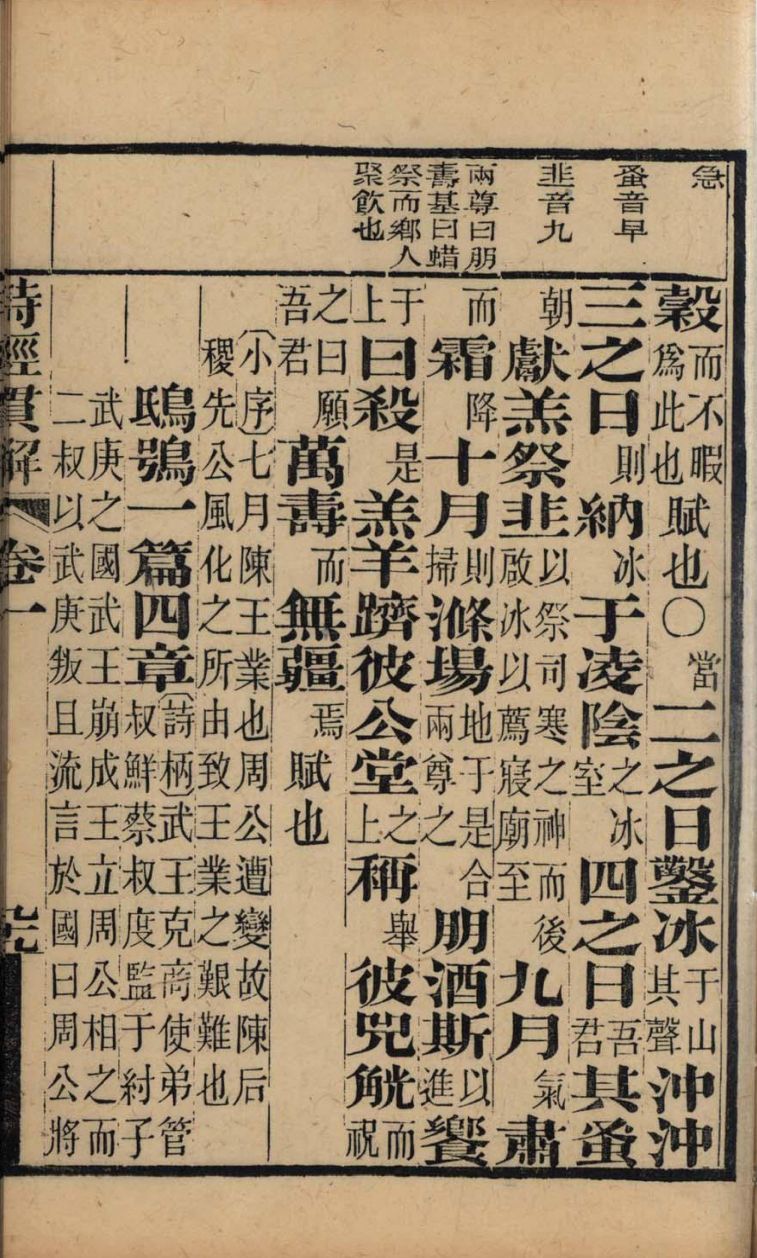 急
蚤音早
韭音九
兩尊曰朋
壽基曰蜡
祭而鄉人
聚飲也
穀而不暇為此也賦也○當二之日鑿冰于山其聲沖沖
三之日則納冰于凌陰之室冰四之日吾君其蚤
朝獻羔祭韭以祭司寒之神而後啟冰以薦寢廟至九月氣肅
而霜降十月則掃滌場地于是合兩尊之朋酒斯以進饗
于上曰殺是羔羊躋彼公堂之上稱舉彼兕觥而祝
之曰願吾君萬壽而無疆焉賦也
小序七月陳王業也周公遭變故陳后
稷先公風化之所由致王業之艱難也
鴟鴞一篇四章詩柄武王克商使弟管叔鮮蔡叔度監于紂子
武庚之國武王崩成王立周公相之而
二叔以武庚叛且流言於國曰周公將
詩經貫解 卷一